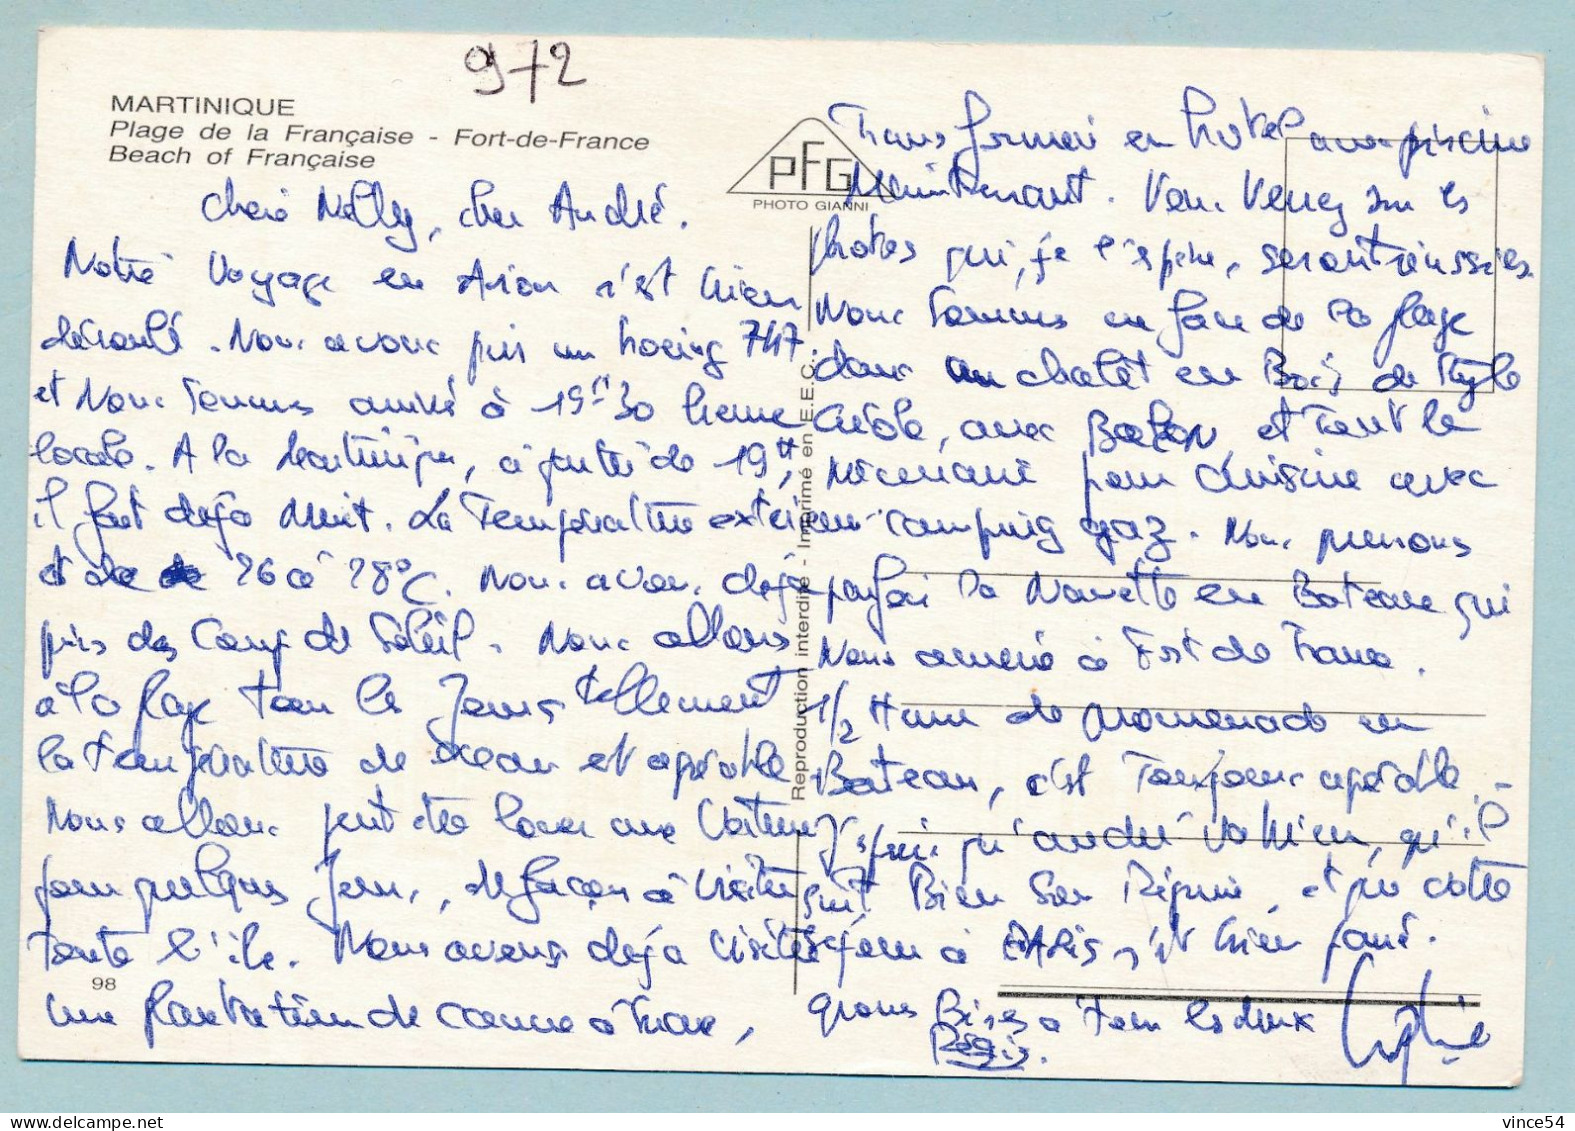 972
MARTINIQUE
Plage de la Française - Fort-de-France
Beach of Française
PFG
PHOTO GIANNI
Reproduction interdite - Imprimé en E.E.C.
98
Chère Nelly, cher André.
Notre Voyage en Avion s'est bien
déroulé. Nous avons pris un boeing 747.
et Nous sommes arrivé à 19H30 heure
locale. A la Martinique, à partir de 19H,
il fait déjà Nuit. La Température extérieure
et de 26 à 28°C. Nous avons déjà
pris des Coups de Soleil. Nous allons
à la plage tous les Jours tellement
la température de l'océan est agréable
Nous allons peut être louer une Voiture
pour quelques Jours, de façon à visiter
toute l'île. Nous avons déjà visité
une plantation de canne à sucre,
Transformé en hôtel avec piscine
Maintenant. Vous Verrez sur les
photos qui, je l'espère, seront réussies.
Nous sommes en face de la plage
dans un chalet en Bois de style
Créole, avec Balcon, et tout le
Nécessaire pour Cuisine avec
camping gaz. Nous prenons
parfois la Navette en Bateau qui
Nous amène à Fort de France.
1/2 Heure de promenade en
Bateau, c'est Toujours agréable.
J'espère qu'André va bien, qu'il
suit Bien son Régime, et que votre
Séjour à PARIS s'est bien passé.
grosses Bises à tous les deux
Régis.